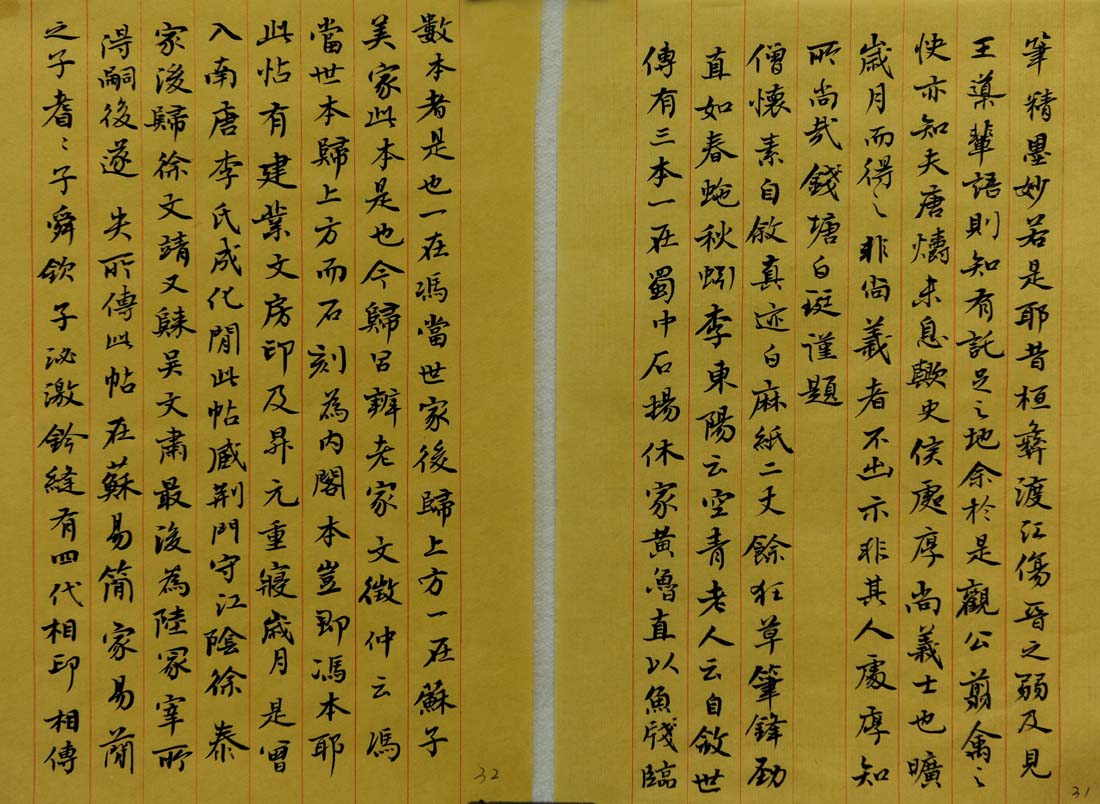 筆精墨妙若是耶昔桓彝渡江傷晉之弱及見
王導輩語則知有託足之地余於是觀公翦禽之
快亦知夫唐燽未息歟史侯處厚尚義士也曠
歲月而得之非尚義者不出示非其人處厚知
所尚哉錢塘白珽謹題
僧懷素自敘真迹白麻紙二丈餘狂草筆鋒勁
直如春蚓秋蚓李東陽云空青老人云自敘世
傳有三本一在蜀中石揚休家黃魯直以魚牋臨
31
數本者是也一在馮當世家後歸上方一在蘇子
美家此本是也今歸呂辦老家文徵仲云馮
當世本歸上方而石刻為內閣本豈即馮本耶
此帖有建業文房印及昇元重寢歲月是曾
入南唐李氏成化間此帖藏荊門守江陰徐泰
家後歸徐文靖又歸吳文肅最後為陸冢宰所
得嗣後遂失所傳此帖在蘇易簡家易簡
之子耆〻子舜欽子泌激鈐縫有四代相印相傳
32